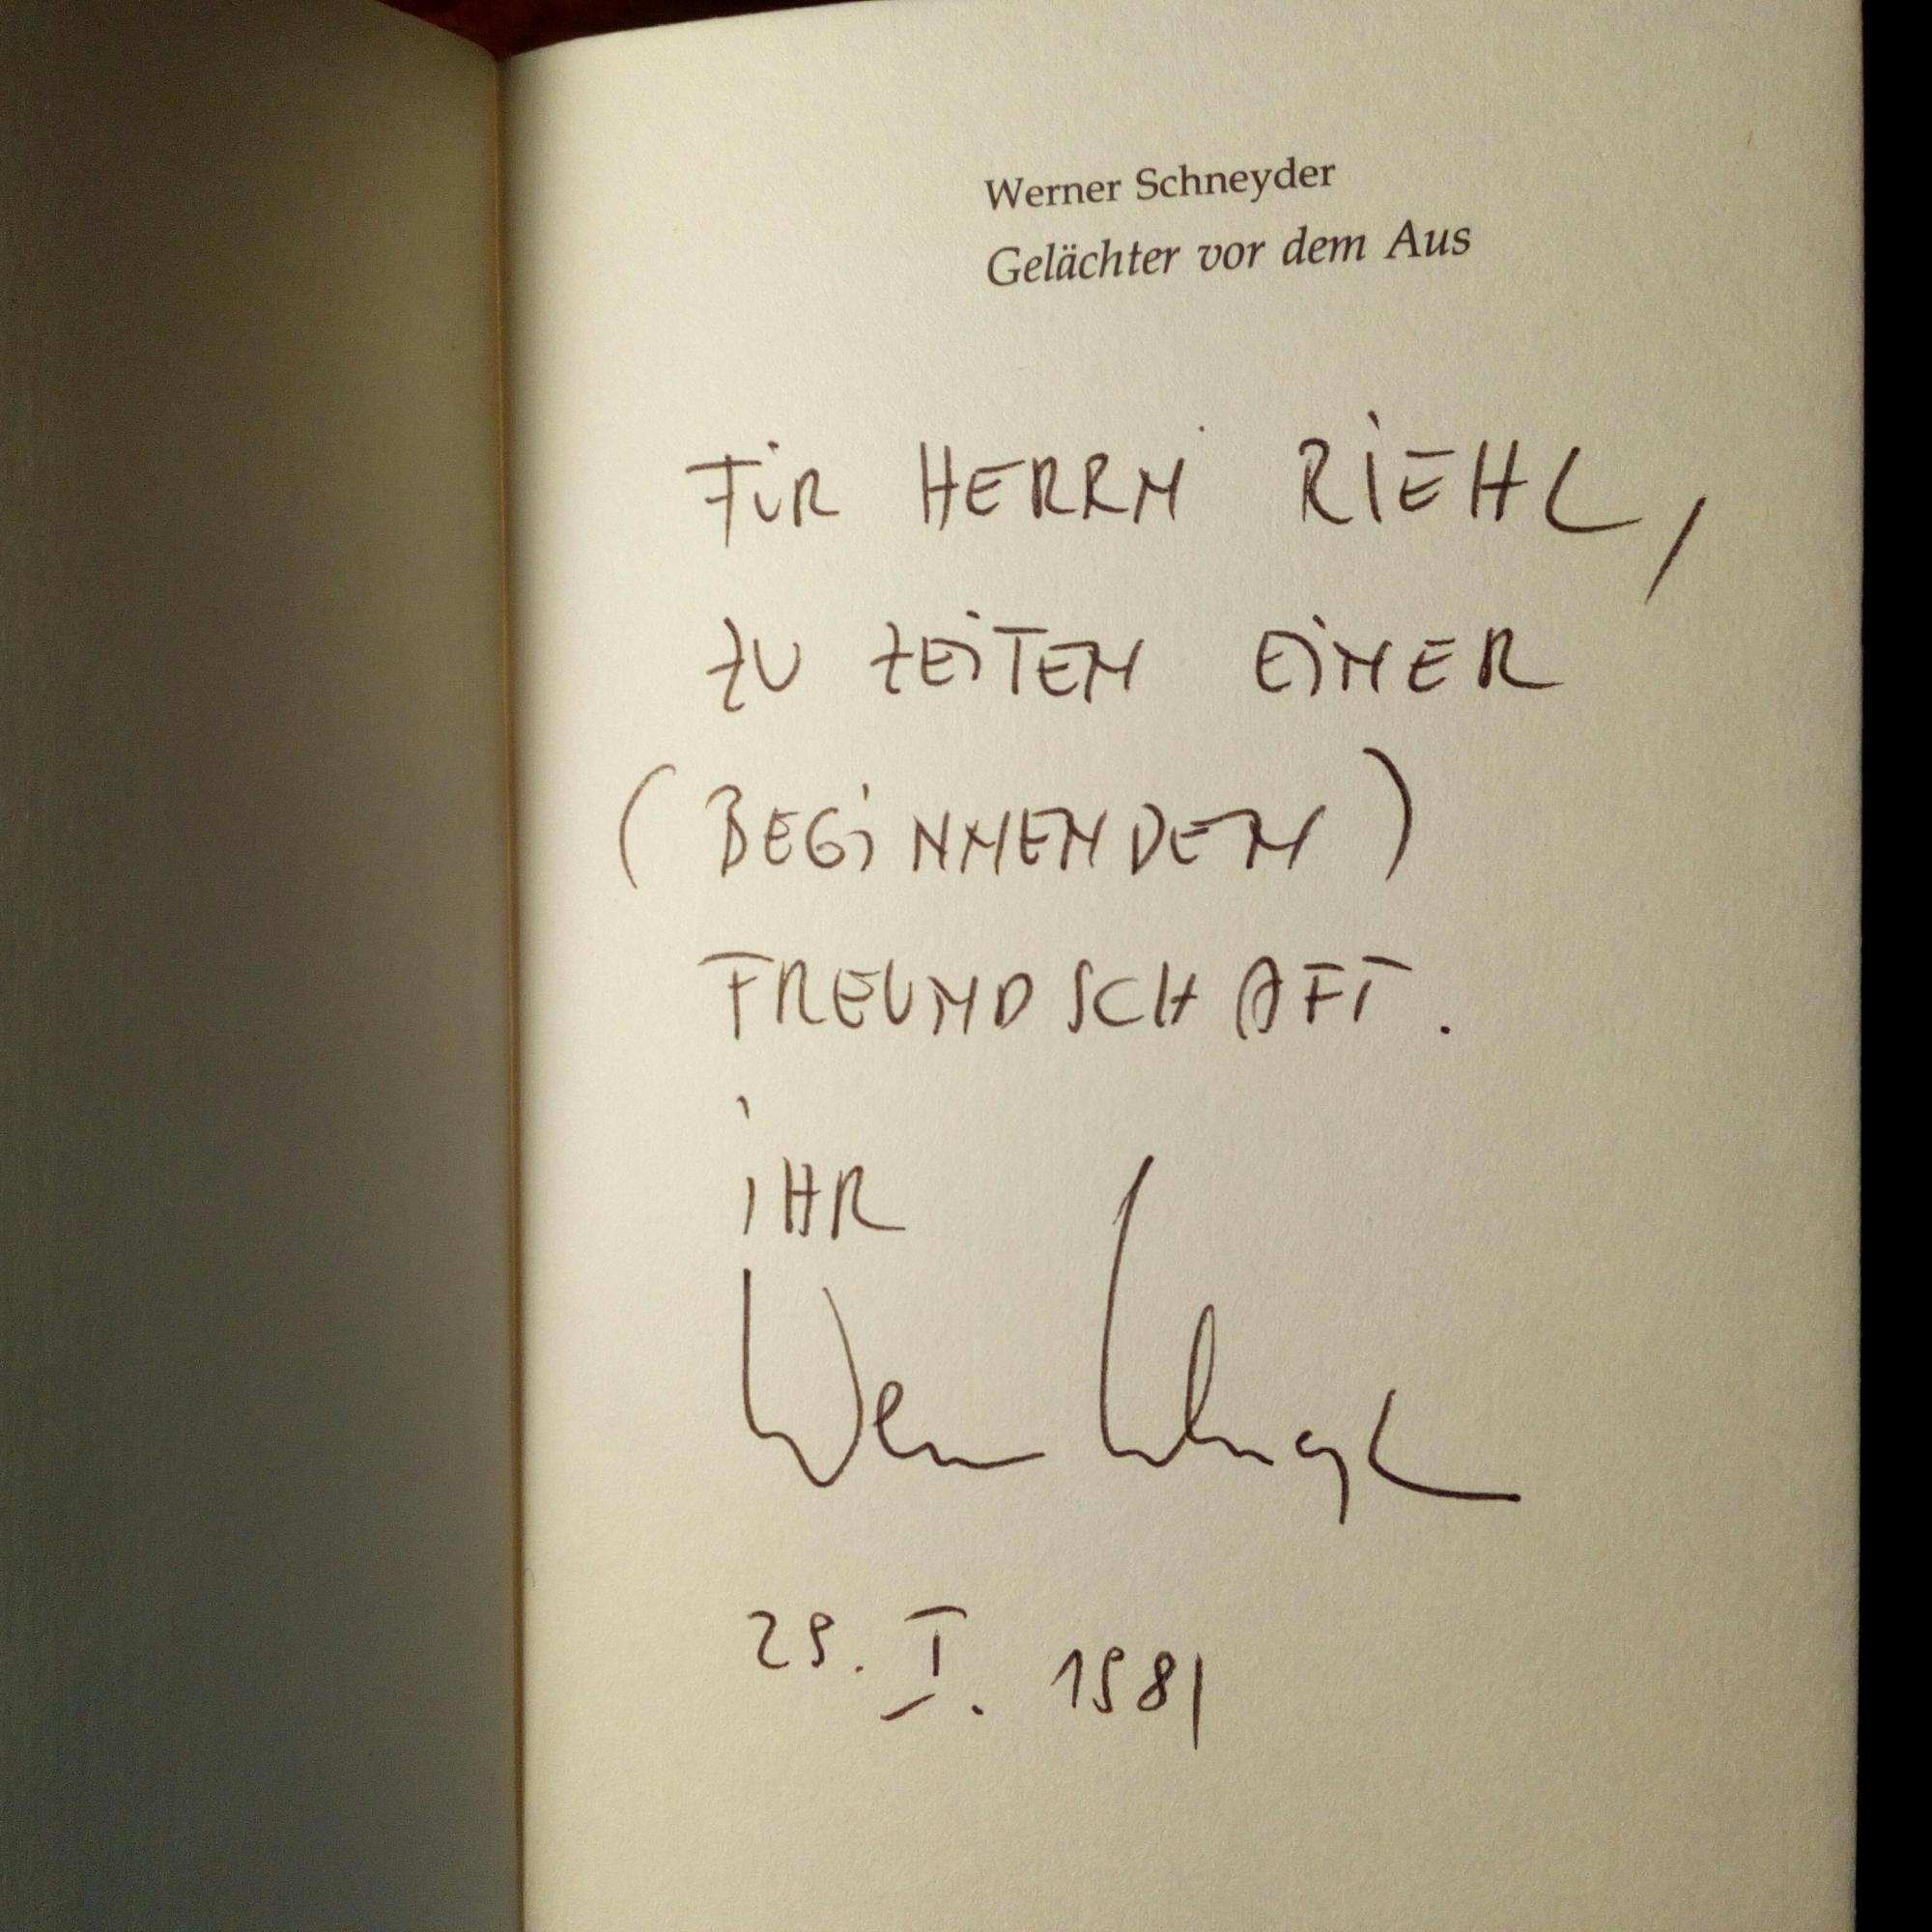 Werner Schneyder
Gelächter vor dem Aus
FÜR HERRN RIEHL,
ZU ZEITEN EINER
(BEGINNENDEN)
FREUNDSCHAFT.
IHR
Werner Schneyder
29. I. 1981